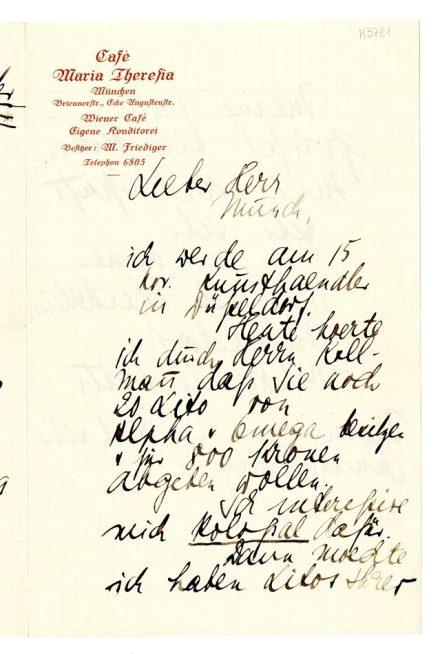 K3781
Café
Maria Theresia
München
Briennerstr., Ecke Augustenstr.
Wiener Café
Eigene Konditorei
Besitzer: M. Friediger
Telephon 6805
Lieber Herr
Munch,
ich werde am 15
Nov. Kunsthaendler
in Düsseldorf.
Heute hoerte
ich durch Herrn Koll-
man̄ daß Sie noch
20 Lito von
Alpha & Omega besitzen
& für 800 Kronen
abgeben wollen.
Ich interessire
mich Kolossal dafür.
Dann moechte
ich haben Litos Ihrer